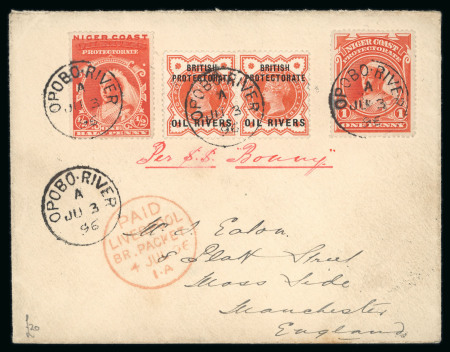 NIGER COAST
PROTECTORATE
½ ½
HALF PENNY
BRITISH
PROTECTORATE
OIL RIVERS
BRITISH
PROTECTORATE
OIL RIVERS
NIGER COAST
PROTECTORATE
1 1
ONE PENNY
OPOBO·RIVER
A
JU 3
96
OPOBO·RIVER
A
JU 3
96
OPOBO·RIVER
A
JU 3
96
Per S.S. "Bonny"
OPOBO·RIVER
A
JU 3
96
PAID
LIVERPOOL
BR. PACKET
1·A
Eaton
Platt Street
Moss Side
Manchester
England
£20